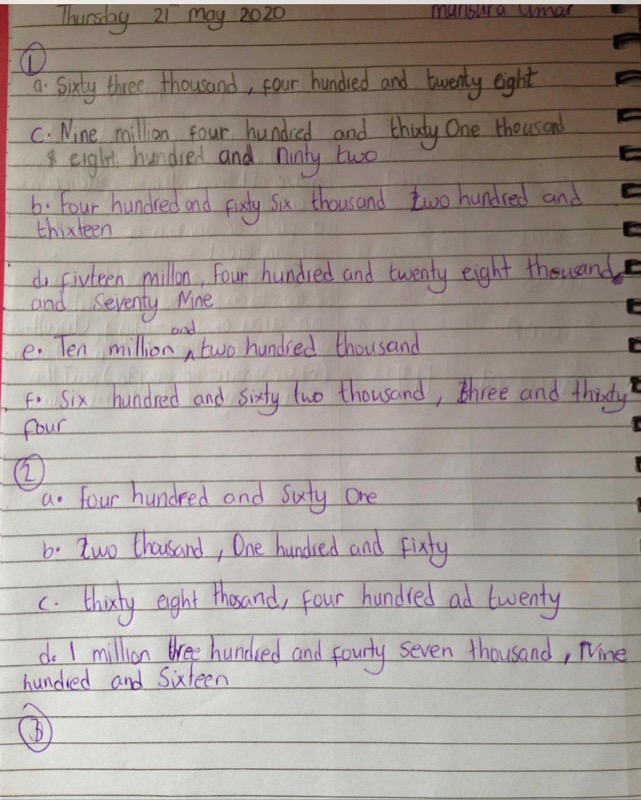 Thursday 21st May 2020 Mansura Umar
1
a. Sixty three thousand, four hundred and twenty eight
c. Nine million four hundred and thirty One thousand
& eight hundred and ninty two
b. four hundred and fixty six thousand two hundred and
thirteen
d. fivteen millon, four hundred and twenty eight thousand,
and seventy Nine
e. Ten million and two hundred thousand
f. Six hundred and sixty two thousand, three and thirty
four
2
a. four hundred and sixty One
b. two thousand, One hundred and fixty
c. thirty eight thosand, four hundred ad twenty
d. 1 million three hundred and fourty seven thousand, Nine
hundred and Sixteen
3